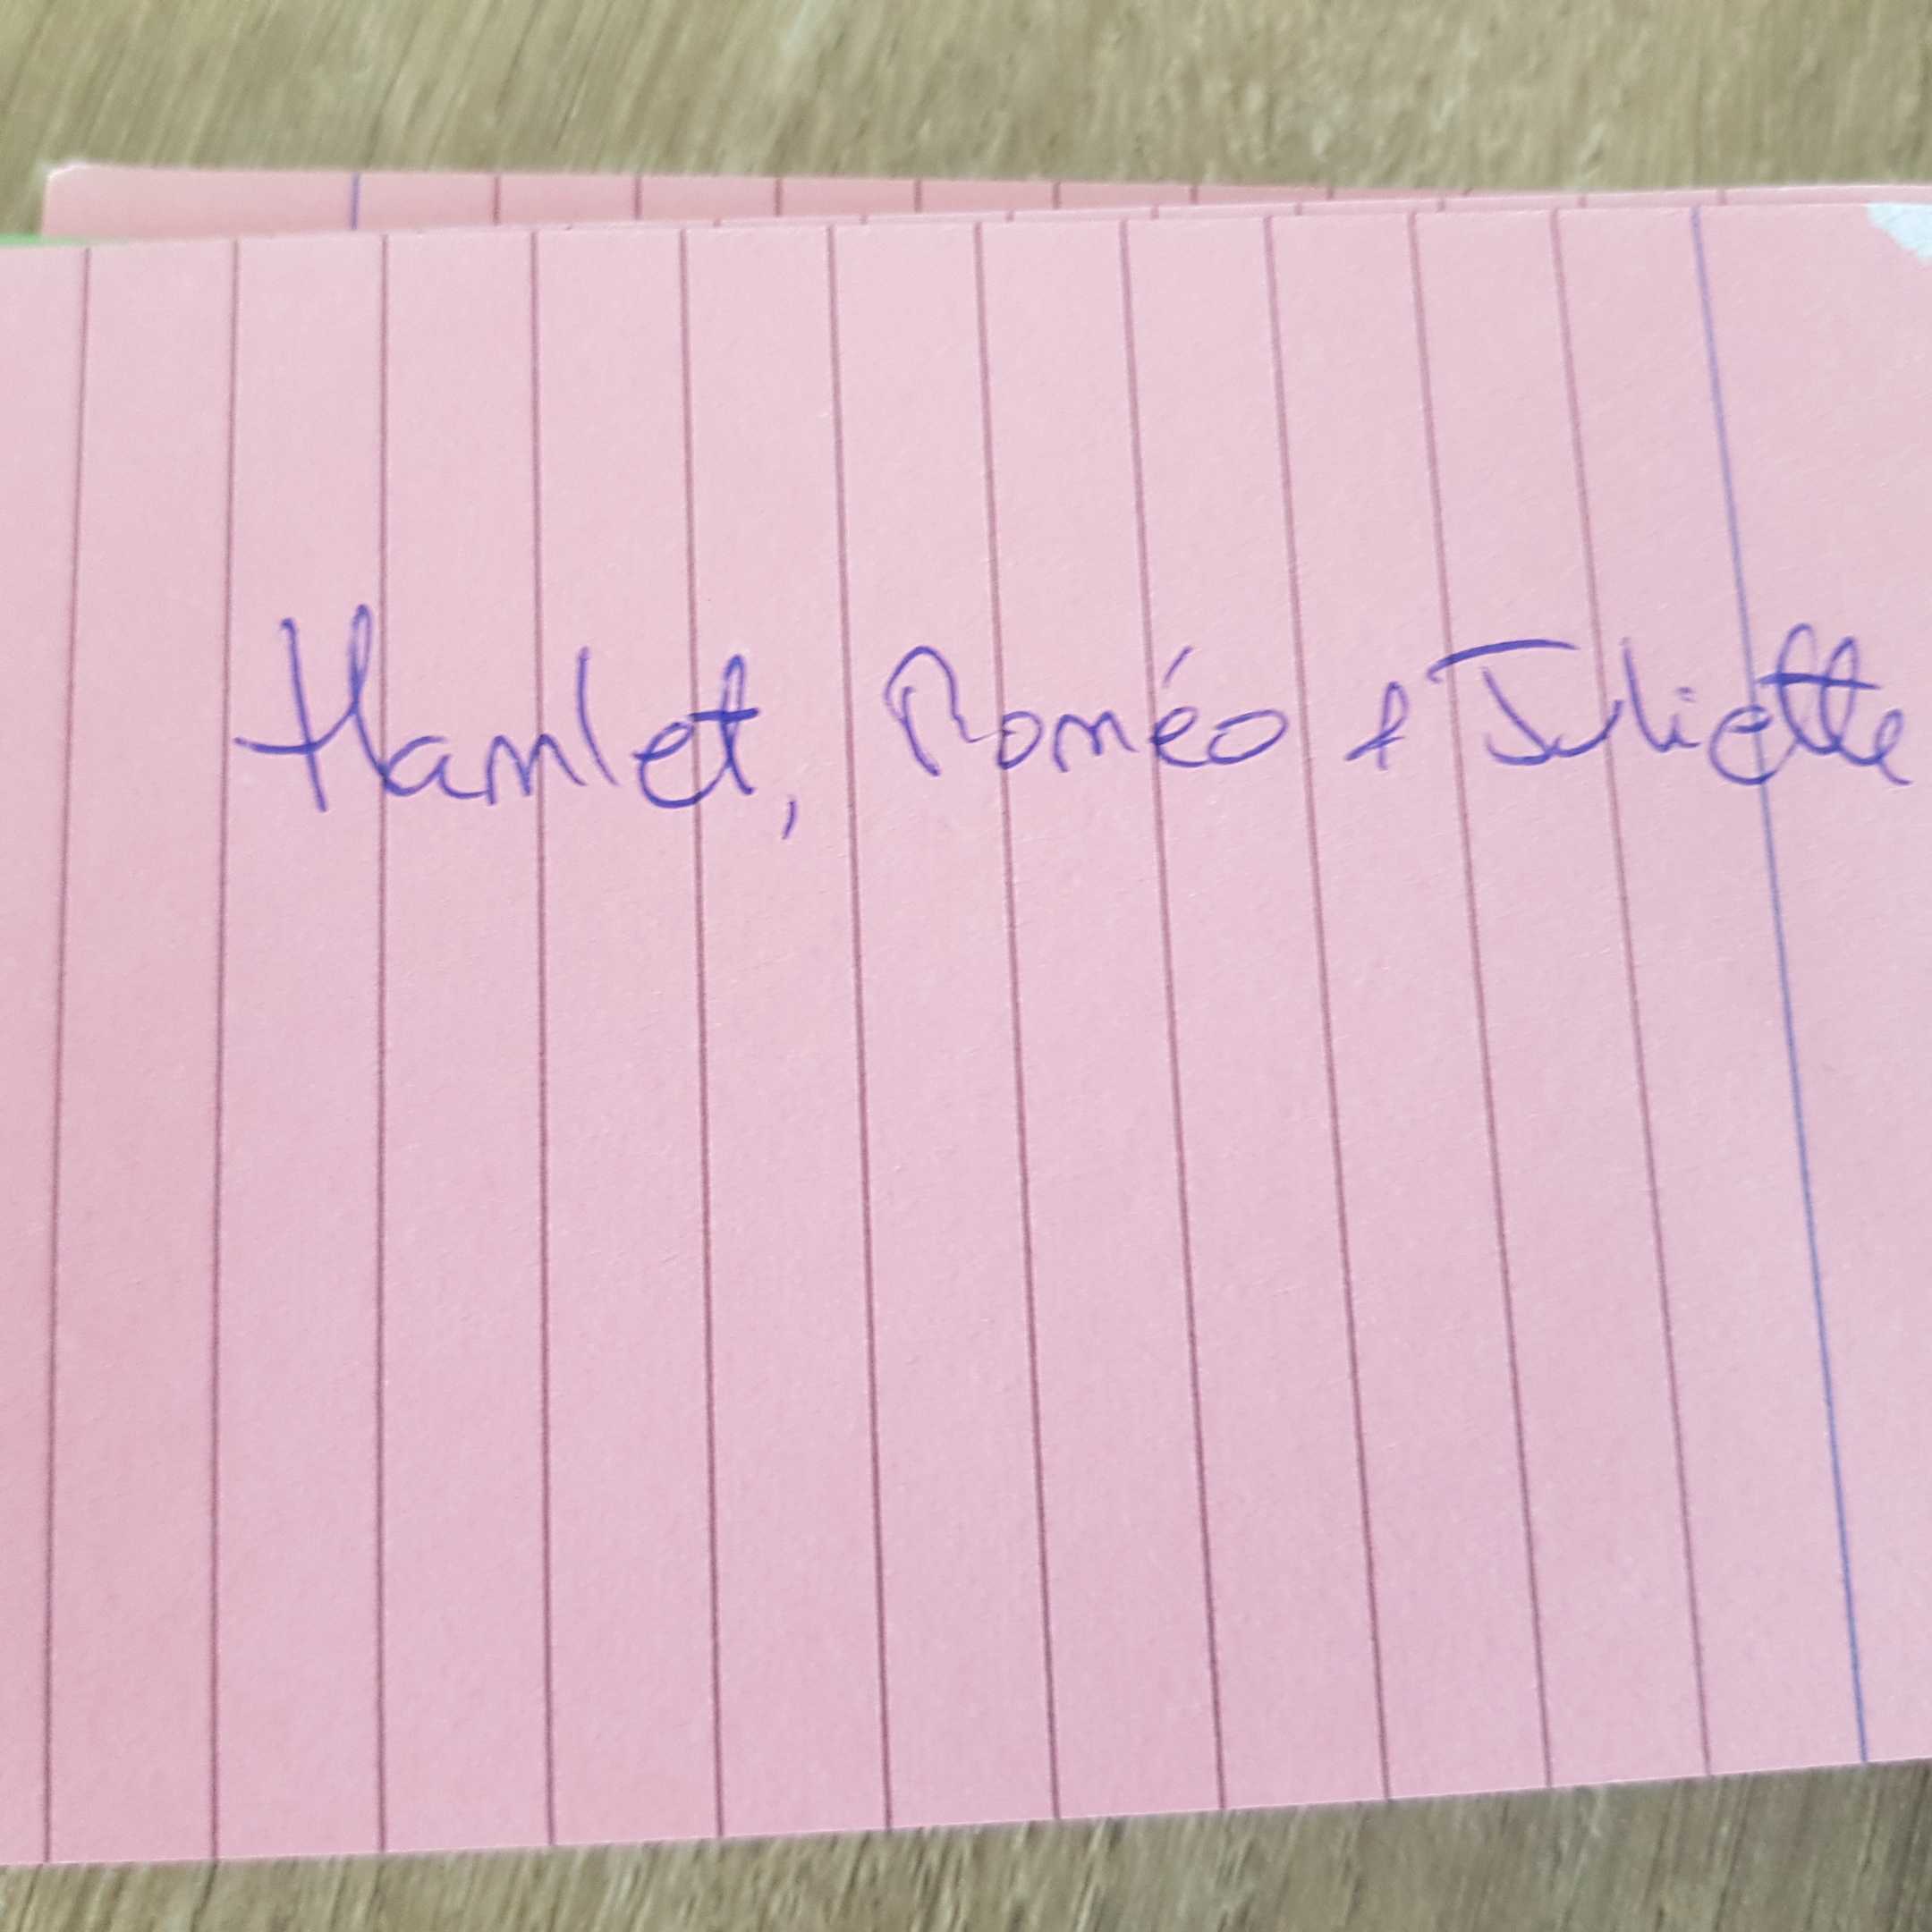 Hamlet, Roméo & Juliette